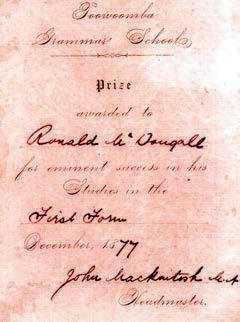 Toowoomba
Grammar School.
Prize
awarded to
Ronald McDougall
for eminent success in his
Studies in the
First Form
December, 1877
John Mackintosh M.A
Headmaster.